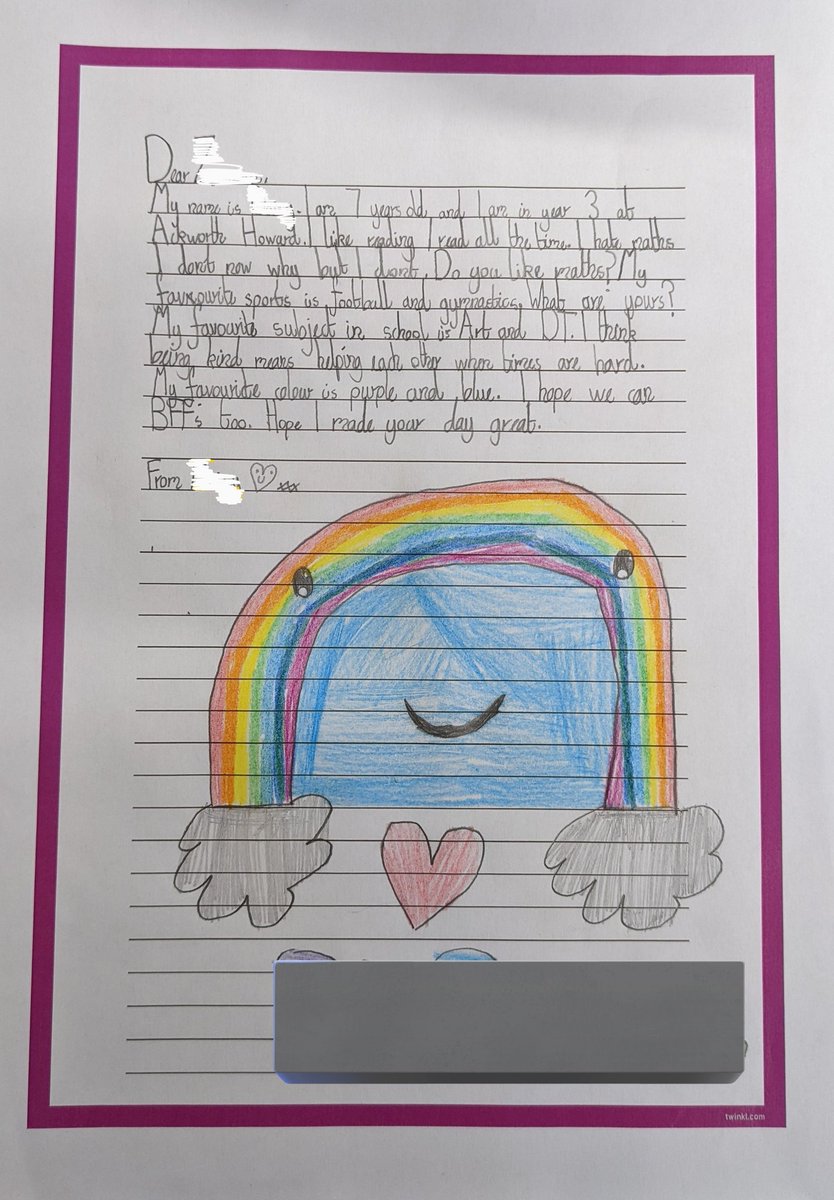 Dear
My name is . I am 7 years old and I am in year 3 at
Ackworth Howard. I like reading I read all the time. I hate maths
I dont now why but I dont. Do you like maths? My
favxourite sports is football and gymnastics. What are yours?
My favourite subject in school is Art and DT. I think
being kind means helping each other when times are hard.
My favourite colour is purple and blue. I hope we can
Bff's too. Hope I made your day great.
From xxx
twinkl.com